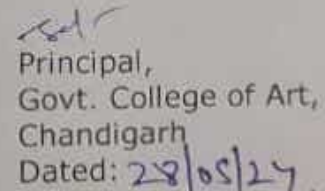 Principal,
Govt. College of Art,
Chandigarh
Dated: 28/05/24